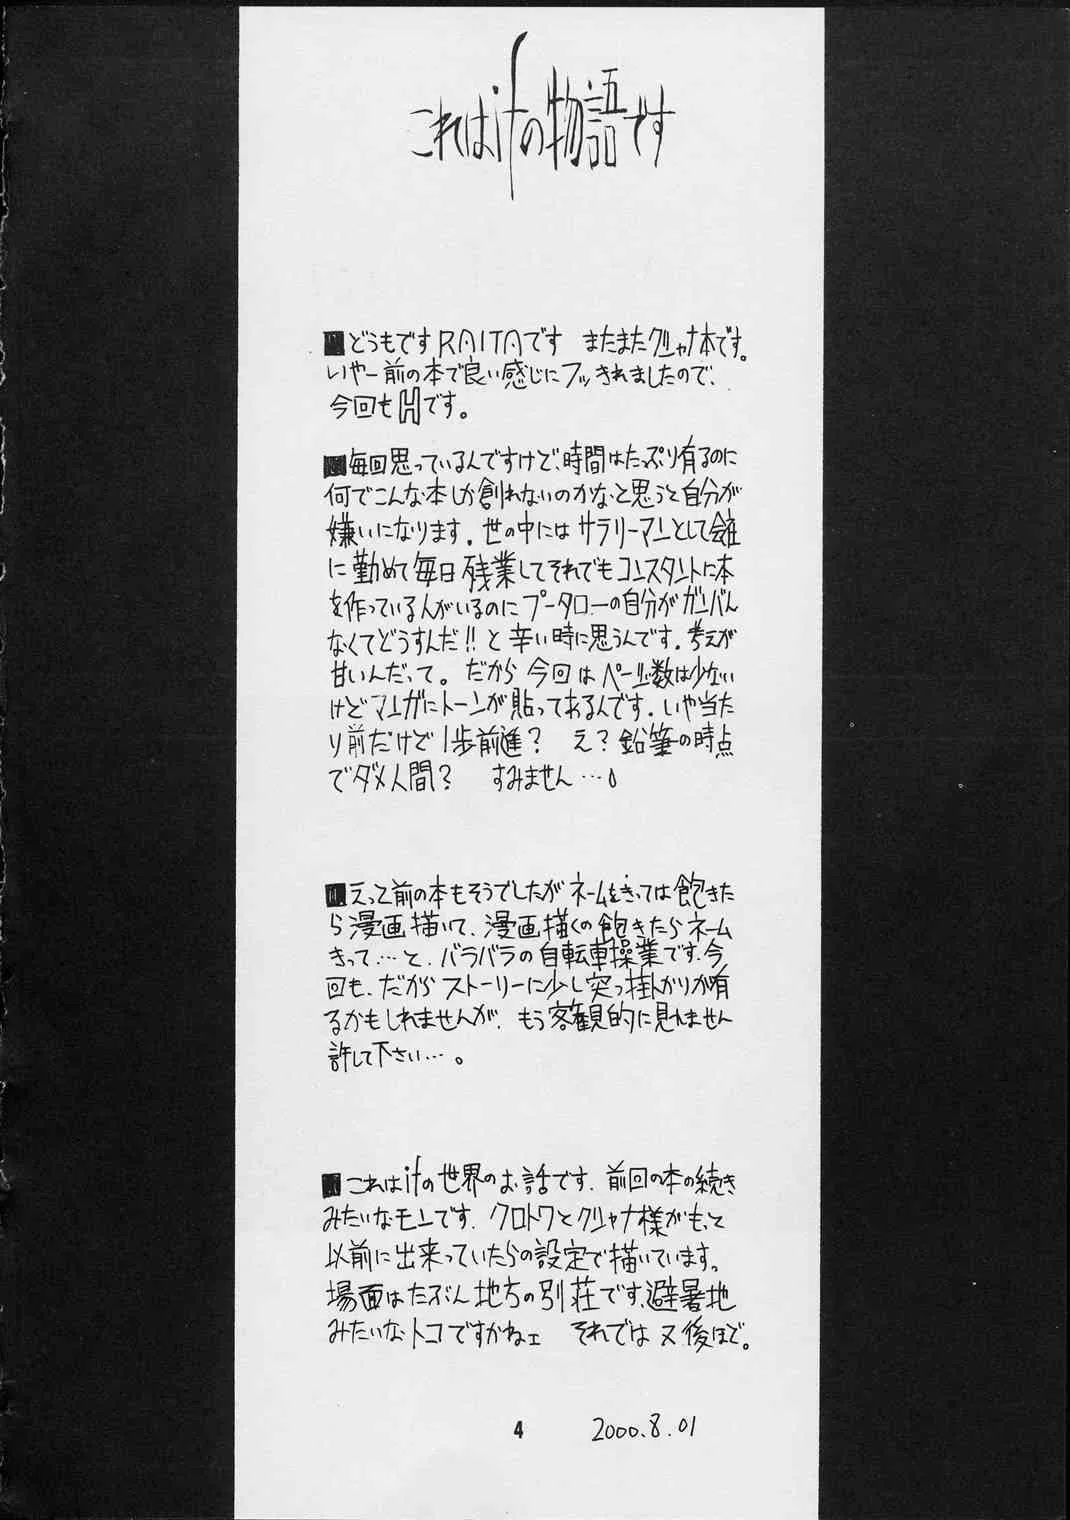 これはifの物語です
■どうもですRAITAです　またまたクシャナ本です。
いやー前の本で良い感じにフッきれましたので、
今回もHです。
■毎回思っているんですけど、時間はたっぷり有るのに
何でこんな本しか創れないのかなと思うと自分が
嫌いになります。世の中にはサラリーマンとして会社
に勤めて毎日残業してそれでもコンスタントに本
を作っている人がいるのにプータローの自分がガンバん
なくてどうすんだ!!と辛い時に思うんです。考えが
甘いんだって。だから今回はページ数は少ない
けどマンガにトーンが貼ってあるんです。いや当た
り前だけど1歩前進?　え?鉛筆の時点
でダメ人間?　すみません…。
■えっと前の本もそうでしたがネームをきっては飽きた
ら漫画描いて、漫画描くの飽きたらネーム
きって…と、バラバラの自転車操業です。今
回も、だからストーリーに少し突っ掛かりが有
るかもしれませんが、もう客観的に見れません
許して下さい…。
■これはifの世界のお話です。前回の本の続き
みたいなモンです。クロトワとクシャナ様がもっと
以前に出来っていたらの設定で描いています。
場面はたぶん地方の別荘です、避暑地
みたいなトコですかねェ　それでは又後ほど。
4
2000.8.01